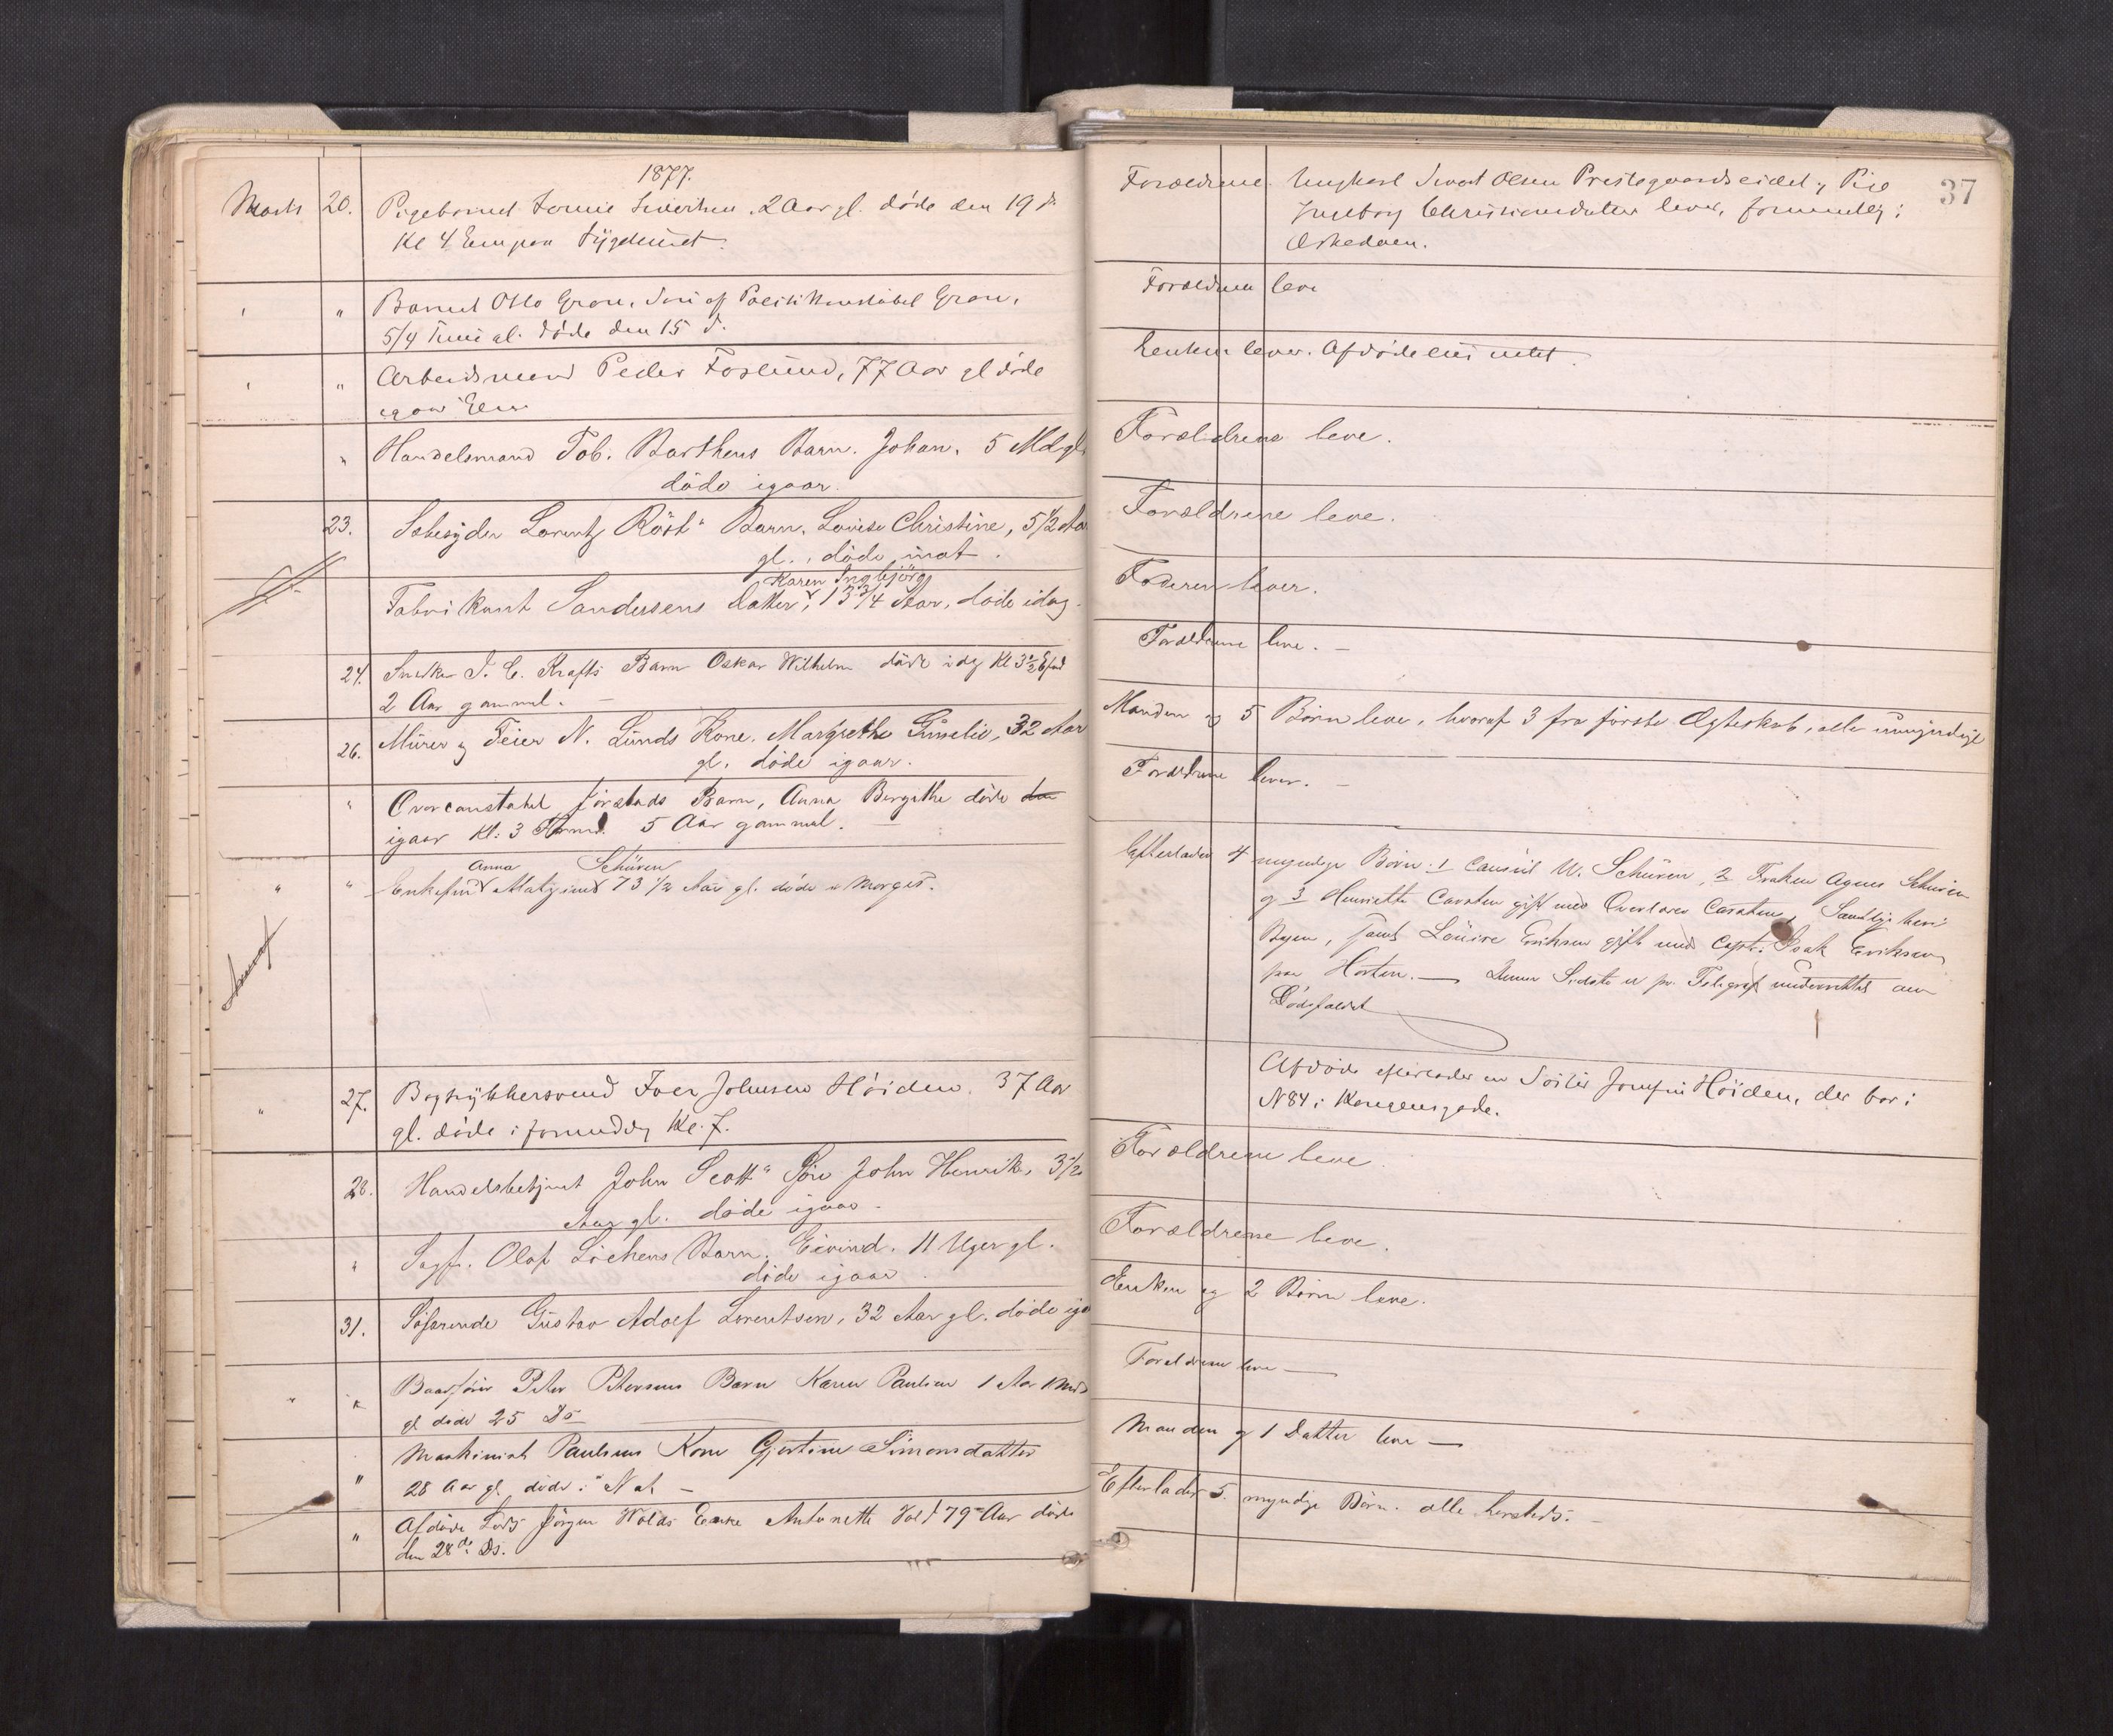 1877.
Marts 20. Pigebarnet Severine Sivertsen, 2 Aar gl. døde den 19 ds
Kl 4 Em paa Sygehuset.
" Barnet Otto Gran, Søn af Politikonstabel Gran,
5/4 gl. døde den 15 d.
" Arbeidsmand Peder Foslund, 77 Aar gl døde
igaar
" Handelsmand Tob. Barthens Barn. Johan. 5 Md gl.
døde igaar.
23. Sæbesyder Lorentz Röst" Barn, Lovise Christine, 5 1/2 Aar
gl., døde inat.
Karen Ingebjörg
Fabrikant Sandersens Datter, 13 3/4 Aar, døde idag.
24. Snedker J. C. Krafts Barn Oskar Wilhelm døde idag Kl 3 1/2
2 Aar gammel. —
26. Mürer og Feier N. Lünds Kone, Margrethe 32 Aar
gl. döde igaar.
" Overconstabel Jørstads Barn, Anna Bergithe döde den
igaar Kl: 3 Form. 5 Aar gammel. —
Anna Schüren
" " Enkefru 73 1/2 Aar gl. døde i Morges.
" 27. Bogtrykkersvend Iver Johnsen Höiden. 37 Aar
gl. døde i formiddag Kl. 7.
28. Handelsbetjent John Scott" Sön John Henrik, 3 1/2
Aar gl. døde igaar.
" Sagf. Olaf Lökens Barn, Eivind. 11 Uger gl.
døde igaar.
31. Söfarende Güstav Adolf Lorentsen, 32 Aar gl. døde
" " Peter Petersens Barn Karen Pauline 1 Aar
gl døde 25 Ds
" Maskinist Paulsens Kone Gjertine Simonsdatter
28 Aar gl. døde i Nat —
" Afdøde Lods Jörgen Holds Enke Antonette Hold 79 Aar døde
den 28de Ds.
37
Forældrene Ungkarl Sivert Olsen Prestegaardseidet og Pige
Ingeborg Christiansdatter lever, formentlig i
Forældrene leve
Enken lever. Afdøde eiet intet.
Forældrene leve.
Forældrene leve.
Faderen lever.
Forældrene leve. —
Manden og 5 Börn leve, hvoraf 3 fra förste Ægteskab, alle umyndige
Forældrene lever. —
Efterlader 4 myndige Börn. 1 Consul W. Schüren, 2 Frøken Agnes Schüren
og 3 Henriette Carsten gift med Overlærer Carsten, Samtlige her i
Byen, samt Löuise Eriksen gift med Capt. Isak Eriksen
paa Horten. — Denne Sidste er pr. Telegraf underrettet om
Dødsfaldet
Afdøde efterlader en Söster Josefine Höiden, der bor i
N 84 i Kongensgade.
Forældrene leve.
Forældrene leve.
Enken og 2 Börn leve.
Forældrene leve —
Manden og 1 Datter leve —
Efterlader 5 myndige Börn. alle hersteds. —